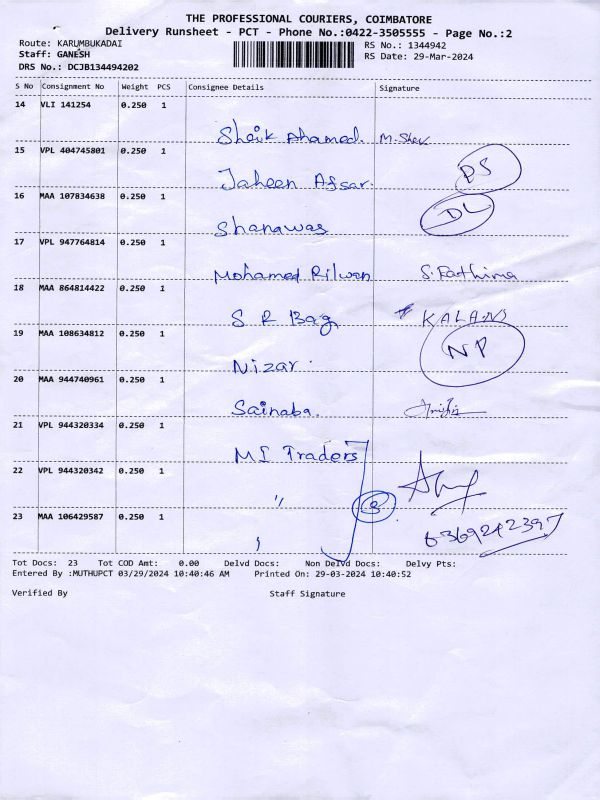 THE PROFESSIONAL COURIERS, COIMBATORE
Delivery Runsheet - PCT - Phone No.:0422-3505555 - Page No.:2
Route: KARUMBUKADAI
RS No.: 1344942
Staff: GANESH
RS Date: 29-Mar-2024
DRS No.: DCJB134494202
S No Consignment No Weight PCS Consignee Details Signature
14 VLI 141254 0.250 1
Sheik Ahamed.
15 VPL 404745801 0.250 1
Jaheen Afsar.
16 MAA 107834638 0.250 1 DL
Shanawas
17 VPL 947764814 0.250 1
Mohamed Rilwan S. Fathima
18 MAA 864814422 0.250 1
S R Bag KALANI
19 MAA 108634812 0.250 1 NP
Nizar.
20 MAA 944740961 0.250 1
Sainaba.
21 VPL 944320334 0.250 1
MI Traders
22 VPL 944320342 0.250 1
" 3
23 MAA 106429587 0.250 1 6369242397
Tot Docs: 23 Tot COD Amt: 0.00 Delvd Docs: Non Delvd Docs: Delvy Pts:
Entered By :MUTHUPCT 03/29/2024 10:40:46 AM Printed On: 29-03-2024 10:40:52
Verified By Staff Signature